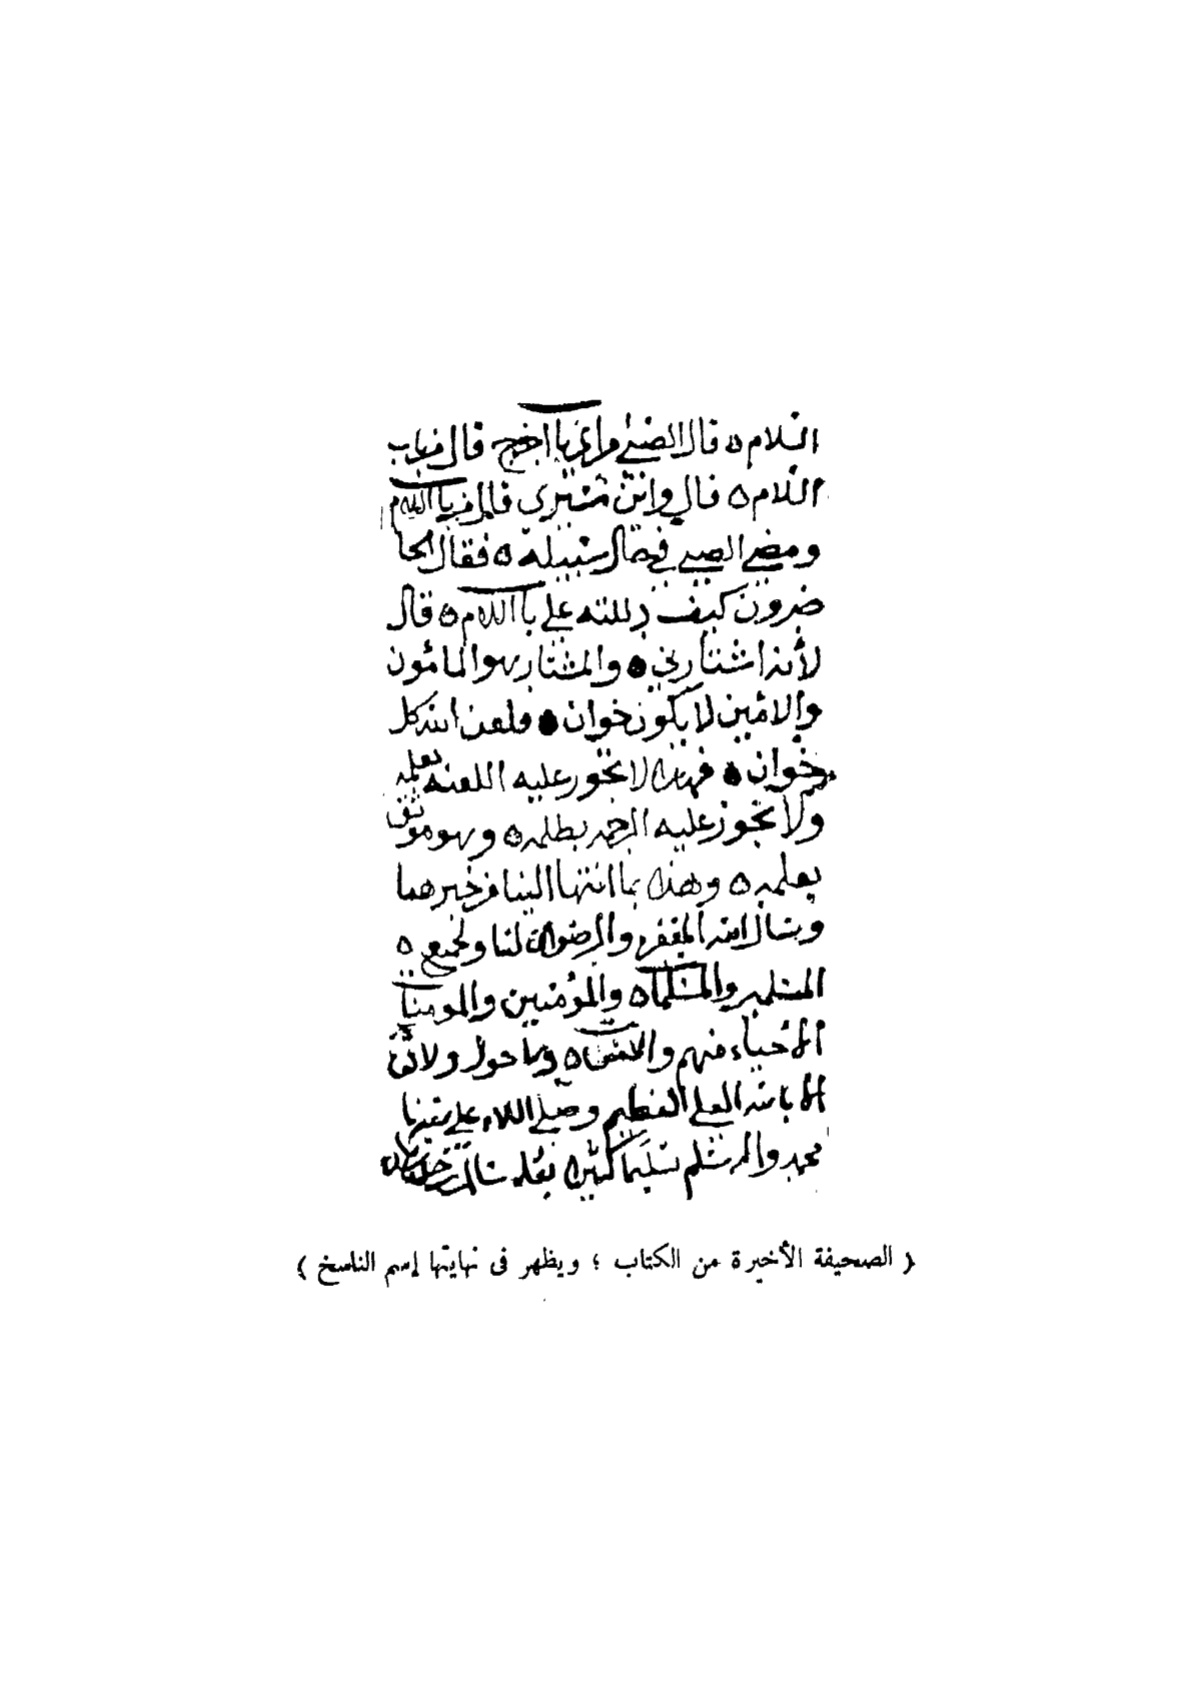 السلام ه قال الصبي من اي باب اخرج قال من باب
السلام ه قال وانت مشتري قال من باب السلام
ومضى الصبي في حال سبيله ه فقال الحا
ضرون كيف دللته على باب السلام ه قال
لأنه اشتارني ه والمشتار هو المأمون
والامين لا يكون خوان ه ولعن الله كل
خوان ه فهذا لا تجوز عليه اللعنه بعلمه
ولا تجوز عليه الرحمه بظلمه ه وهو موثق
بعلمه ه وهذا ما انتها الينا من خبرهما
ونسال الله المغفره والرضوان لنا ولجميع ه
المسلمين والمسلمات ه والمؤمنين والمومنات
الأحياء منهم والاموات ه ولا حول ولا قوة
الا بالله العلي العظيم وصلى الله على سيدنا
محمد واله وسلم تسليما كثيرا بقلم سالم بن
( الصحيفة الأخيرة من الكتاب ؛ ويظهر فى نهايتها إسم الناسخ )